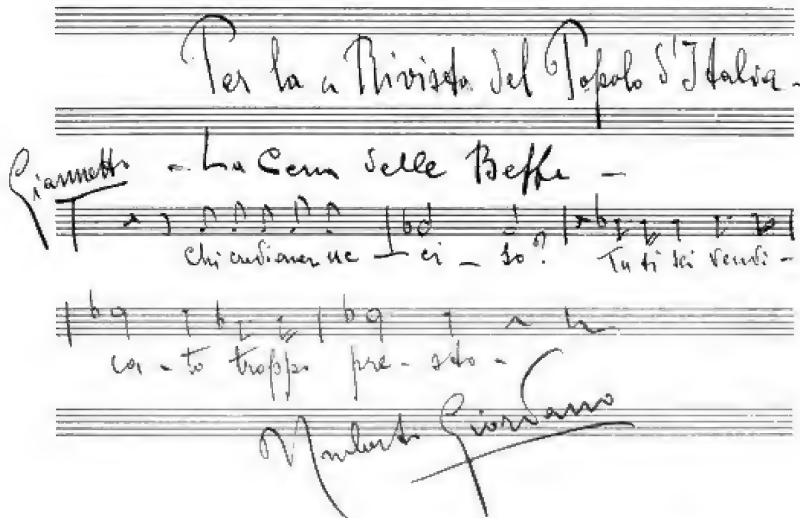 Per la « Rivista del Popolo d'Italia -
Giannetto - La Cena delle Beffe -
Chi credi aver uc - ci - so? Tu ti sei vendi -
ca - to troppo pre - sto -
Umberto Giordano